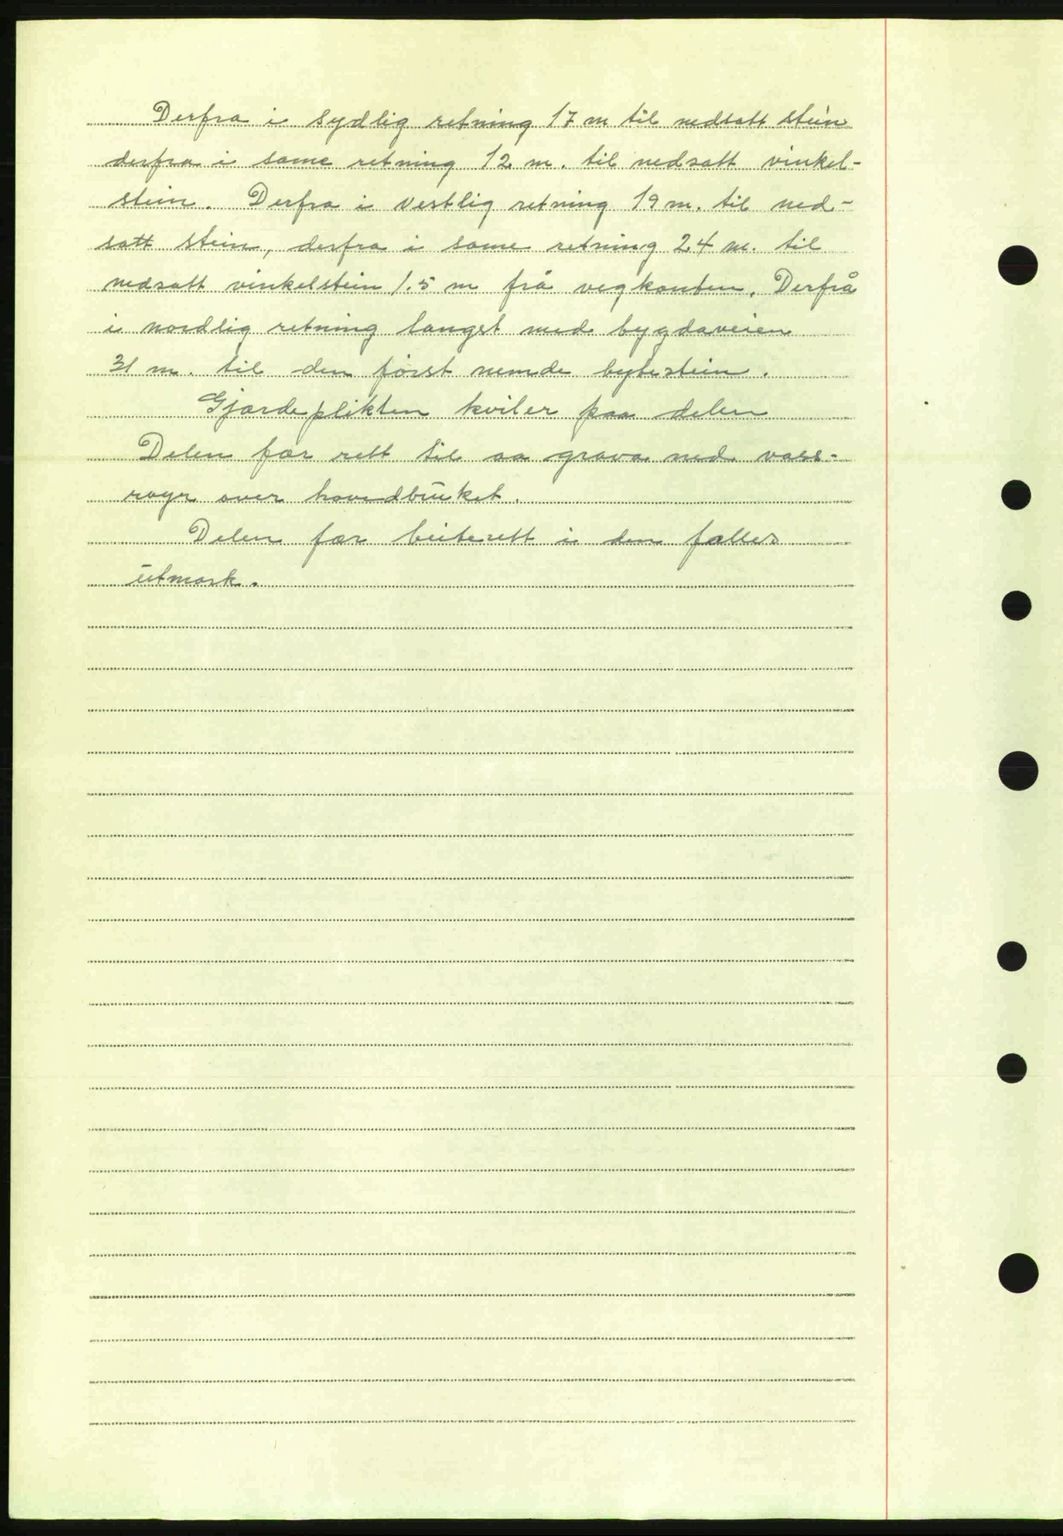 Derfra i sydlig retning 17 m til nedsatt stein
derfra i same retning 12 m. til nedsatt vinkel-
stein. Derfra i vestlig retning 19 m. til ned-
satt stein, derfra i same retning 24 m. til
nedsatt vinkelstein 1.5 m frå vegkanten. Derfrå
i nordlig retning langst med bygdaveien
31 m. til den først nemde bytestein.
Gjærdeplikten kviler paa delen
Delen fær rett til aa grava ned vass-
røyr over hovedbruket.
Delen fær beiterett i den fælles
utmark.